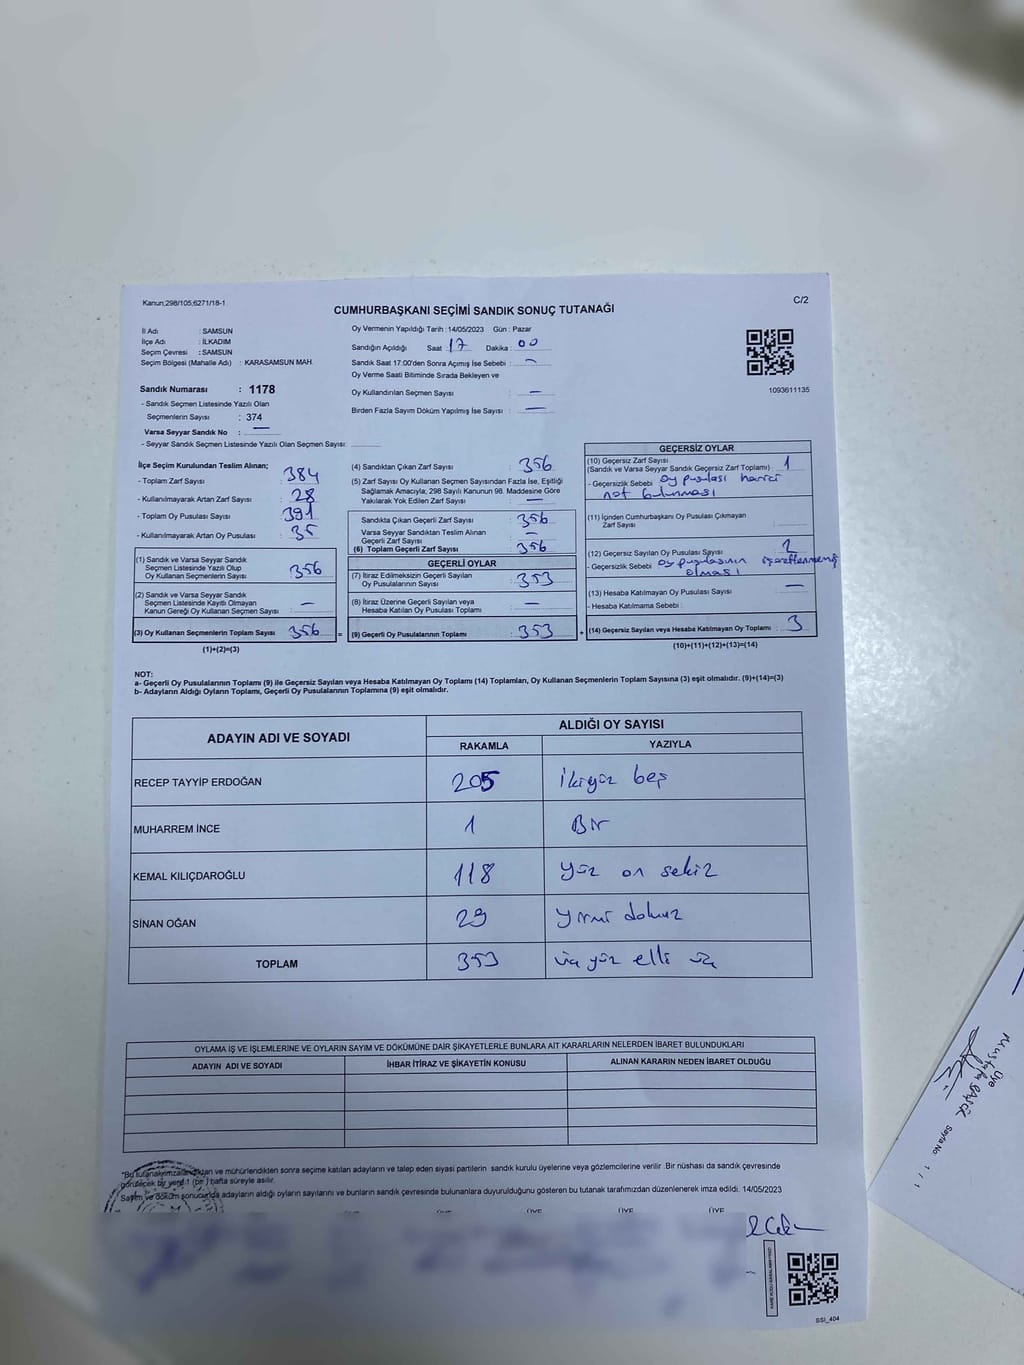 Kanun;298/105;6271/18-1
C/2
CUMHURBAŞKANI SEÇİMİ SANDIK SONUÇ TUTANAĞI
İl Adı : SAMSUN
İlçe Adı : İLKADIM
Seçim Çevresi : SAMSUN
Seçim Bölgesi (Mahalle Adı) : KARASAMSUN MAH.
Sandık Numarası : 1178
- Sandık Seçmen Listesinde Yazılı Olan
Seçmenlerin Sayısı : 374
Varsa Seyyar Sandık No : —
- Seyyar Sandık Seçmen Listesinde Yazılı Olan Seçmen Sayısı:
Oy Vermenin Yapıldığı Tarih : 14/05/2023 Gün : Pazar
Sandığın Açıldığı Saat : 17 Dakika : 00
Sandık Saat 17.00'den Sonra Açımış İse Sebebi : —
Oy Verme Saati Bitiminde Sırada Bekleyen ve
Oy Kullandırılan Seçmen Sayısı : —
Birden Fazla Sayım Döküm Yapılmış İse Sayısı : —
1093611135
İlçe Seçim Kurulundan Teslim Alınan;
- Toplam Zarf Sayısı : 384
- Kullanılmayarak Artan Zarf Sayısı : 28
- Toplam Oy Pusulası Sayısı : 391
- Kullanılmayarak Artan Oy Pusulası : 35
(1) Sandık ve Varsa Seyyar Sandık
Seçmen Listesinde Yazılı Olup
Oy Kullanan Seçmenlerin Sayısı : 356
(2) Sandık ve Varsa Seyyar Sandık
Seçmen Listesinde Kayıtlı Olmayan
Kanun Gereği Oy Kullanan Seçmen Sayısı : —
(3) Oy Kullanan Seçmenlerin Toplam Sayısı : 356 =
(1)+(2)=(3)
(4) Sandıktan Çıkan Zarf Sayısı : 356
(5) Zarf Sayısı Oy Kullanan Seçmen Sayısından Fazla İse, Eşitliği
Sağlamak Amacıyla, 298 Sayılı Kanunun 98. Maddesine Göre
Yakılarak Yok Edilen Zarf Sayısı : —
Sandıkta Çıkan Geçerli Zarf Sayısı : 356
Varsa Seyyar Sandıktan Teslim Alınan
Geçerli Zarf Sayısı : —
(6) Toplam Geçerli Zarf Sayısı : 356
GEÇERLİ OYLAR
(7) İtiraz Edilmeksizin Geçerli Sayılan
Oy Pusulalarının Sayısı : 353
(8) İtiraz Üzerine Geçerli Sayılan veya
Hesaba Katılan Oy Pusulası Toplamı : —
(9) Geçerli Oy Pusulalarının Toplamı : 353 +
GEÇERSİZ OYLAR
(10) Geçersiz Zarf Sayısı
(Sandık ve Varsa Seyyar Sandık Geçersiz Zarf Toplamı) : 1
- Geçersizlik Sebebi : oy pusulası harici
not bulunması
(11) İçinden Cumhurbaşkanı Oy Pusulası Çıkmayan
Zarf Sayısı :
(12) Geçersiz Sayılan Oy Pusulası Sayısı : 2
- Geçersizlik Sebebi : oy pusulasının işaretlenmemiş
olması
(13) Hesaba Katılmayan Oy Pusulası Sayısı : —
- Hesaba Katılmama Sebebi :
(14) Geçersiz Sayılan veya Hesaba Katılmayan Oy Toplamı : 3
(10)+(11)+(12)+(13)=(14)
NOT:
a- Geçerli Oy Pusulalarının Toplamı (9) ile Geçersiz Sayılan veya Hesaba Katılmayan Oy Toplamı (14) Toplamları, Oy Kullanan Seçmenlerin Toplam Sayısına (3) eşit olmalıdır. (9)+(14)=(3)
b- Adayların Aldığı Oyların Toplamı, Geçerli Oy Pusulalarının Toplamına (9) eşit olmalıdır.
ADAYIN ADI VE SOYADI
ALDIĞI OY SAYISI
RAKAMLA YAZIYLA
RECEP TAYYİP ERDOĞAN 205 ikiyüz beş
MUHARREM İNCE 1 Bir
KEMAL KILIÇDAROĞLU 118 yüz on sekiz
SİNAN OĞAN 29 yirmi dokuz
TOPLAM 353 üç yüz elli üç
OYLAMA İŞ VE İŞLEMLERİNE VE OYLARIN SAYIM VE DÖKÜMÜNE DAİR ŞİKAYETLERLE BUNLARA AİT KARARLARIN NELERDEN İBARET BULUNDUKLARI
ADAYIN ADI VE SOYADI İHBAR İTİRAZ VE ŞİKAYETİN KONUSU ALINAN KARARIN NEDEN İBARET OLDUĞU
*Bu tutanak imzalandıktan ve mühürlendikten sonra seçime katılan adayların ve talep eden siyasi partilerin sandık kurulu üyelerine veya gözlemcilerine verilir .Bir nüshası da sandık çevresinde
görülecek bir yere 1 (bir ) hafta süreyle asılır.
Sayım ve döküm sonucunda adayların aldığı oyların sayılarını ve bunların sandık çevresinde bulunanlara duyurulduğunu gösteren bu tutanak tarafımızdan düzenlenerek imza edildi. 14/05/2023
ÜYE ÜYE ÜYE ÜYE
SSİ_404
Üye
Mustafa
Sayfa No 1 / 1